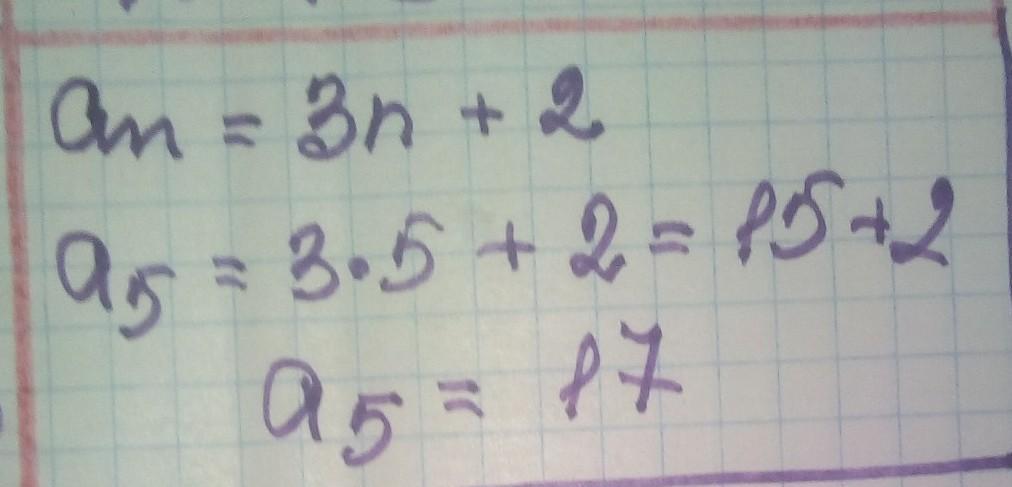 an = 3n + 2
a5 = 3·5 + 2 = 15+2
a5 = 17